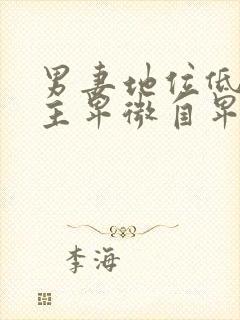 男妻地位低
主卑微自卑
李海